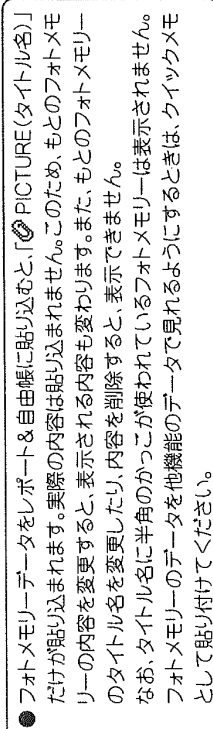 ●フォトメモリーデータをレポート&自由帳に貼り込むと、「📎PICTURE(タイトル名)」
だけが貼り込まれます。実際の内容は貼り込まれません。このため、もとのフォトメモ
リーの内容を変更すると、表示される内容も変わります。また、もとのフォトメモリー
のタイトル名を変更したり、内容を削除すると、表示できません。
なお、タイトル名に半角のかっこが使われているフォトメモリーは表示されません。
フォトメモリーのデータを他機能のデータで見れるようにするときは、クイックメモ
として貼り付けてください。